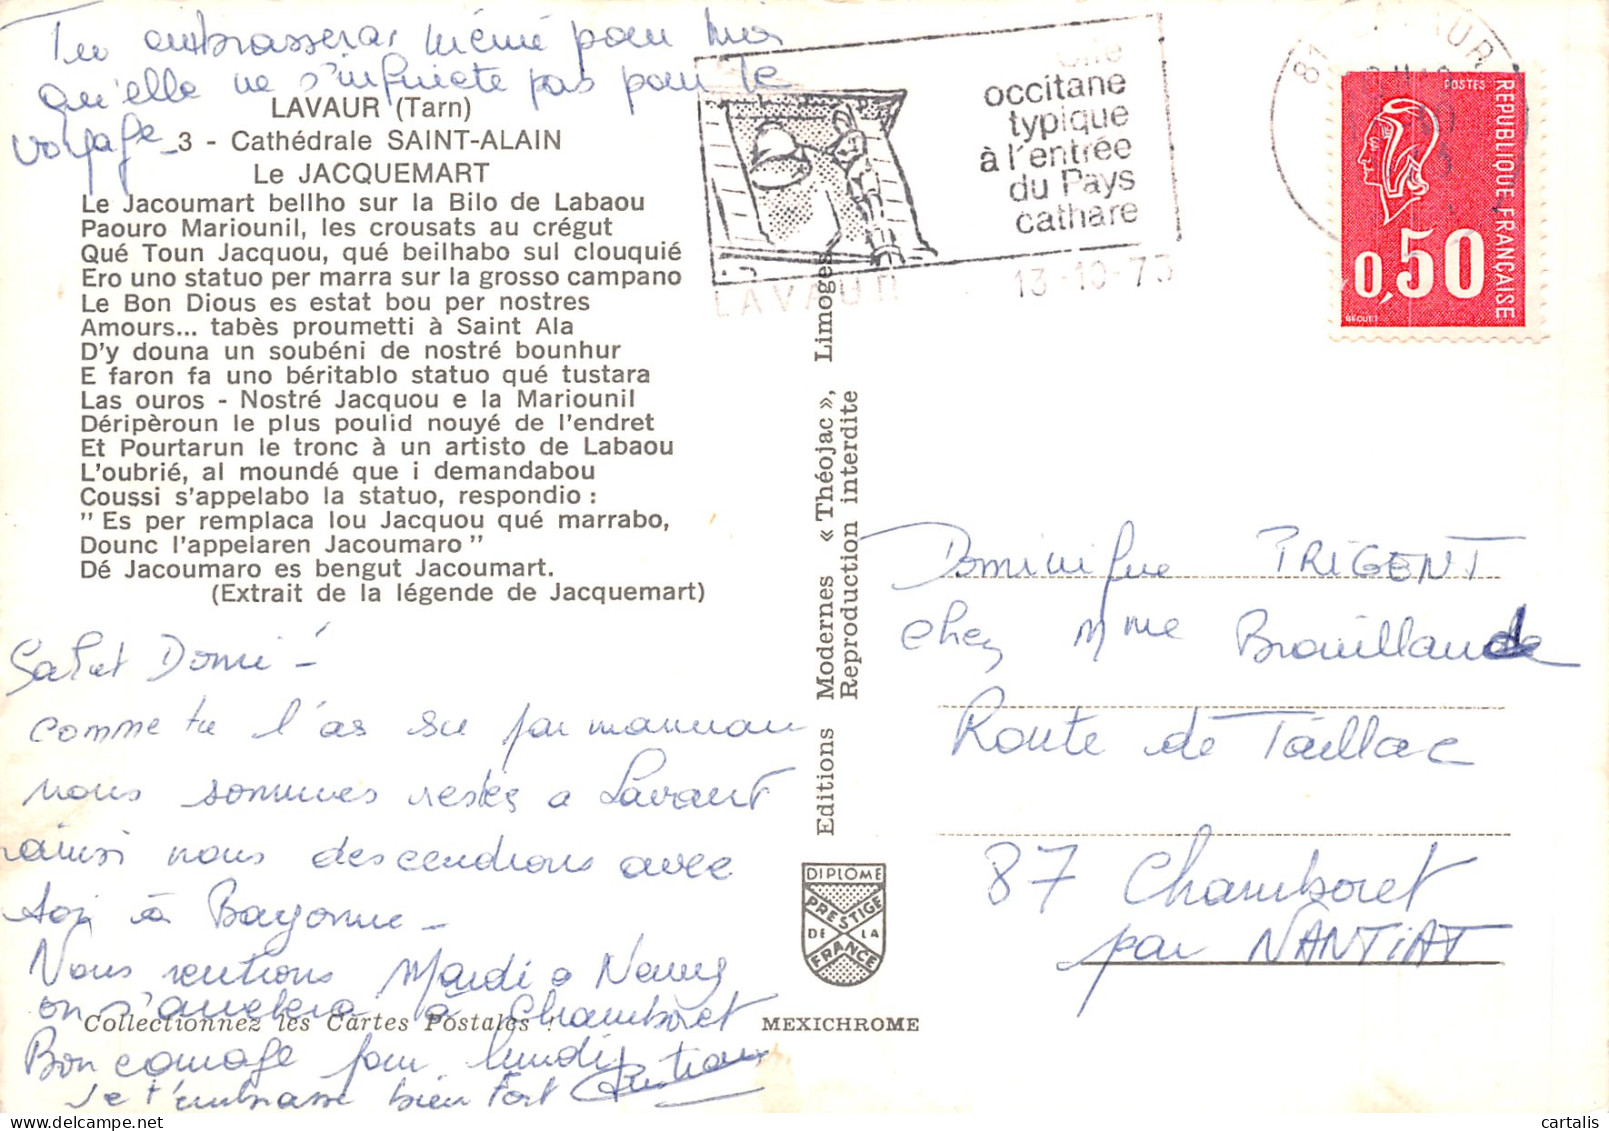 Tu embrasseras mémé pour moi
qu'elle ne s'inquiete pas pour le
voyage
LAVAUR (Tarn)
3 - Cathédrale SAINT-ALAIN
Le JACQUEMART
Le Jacoumart bellho sur la Bilo de Labaou
Paouro Mariounil, les crousats au crégut
Qué Toun Jacquou, qué beilhabo sul clouquié
Ero uno statuo per marra sur la grosso campano
Le Bon Dious es estat bou per nostres
Amours... tabès proumetti à Saint Ala
D'y douna un soubéni de nostré bounhur
E faron fa uno béritablo statuo qué tustara
Las ouros - Nostré Jacquou e la Mariounil
Déripèroun le plus poulid nouyé de l'endret
Et Pourtarun le tronc à un artisto de Labaou
L'oubrié, al moundé que i demandabou
Coussi s'appelabo la statuo, respondio :
" Es per remplaca lou Jacquou qué marrabo,
Dounc l'appelaren Jacoumaro "
Dé Jacoumaro es bengut Jacoumart.
(Extrait de la légende de Jacquemart)
Salut Domi -
comme tu l'as su par maman
nous sommes restés a Lavaur
ainsi nous descendrons avec
toi à Bayonne -
Nous rentrons Mardi a
on s'arretera à Chamboret
Collectionnez les Cartes Postales !
Bon courage pour lundi
Je t'embrasse bien fort
Editions Modernes « Théojac », Limoges
Reproduction interdite
DIPLOME
PRESTIGE
DE LA
FRANCE
MEXICHROME
occitane
typique
à l'entrée
du Pays
cathare
LAVAUR
13-10-73
POSTES
REPUBLIQUE FRANÇAISE
0,50
BEQUET
Dominique PRIGENT
chez Mme Brouillaude
Route de Taillac
87 Chamboret
par NANTIAT
© cartalis
delcampe.net